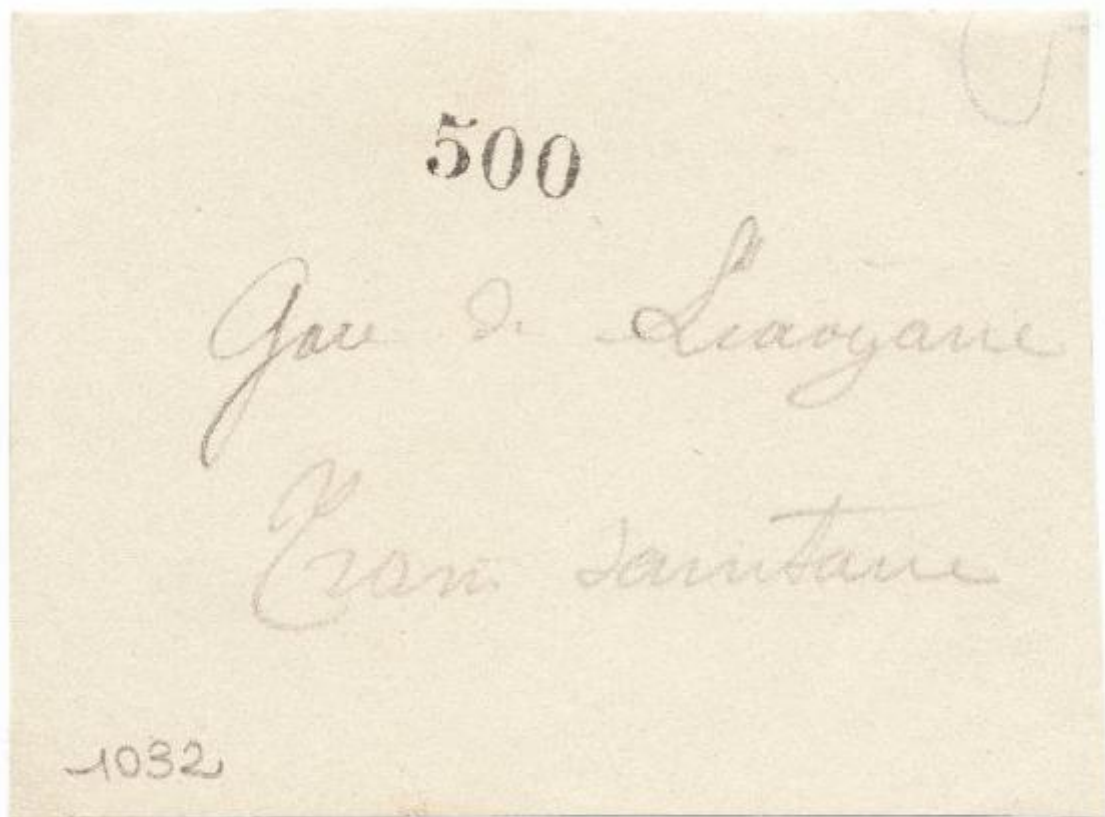 500
Gare de Liaoyane
Train sanitaire
1032